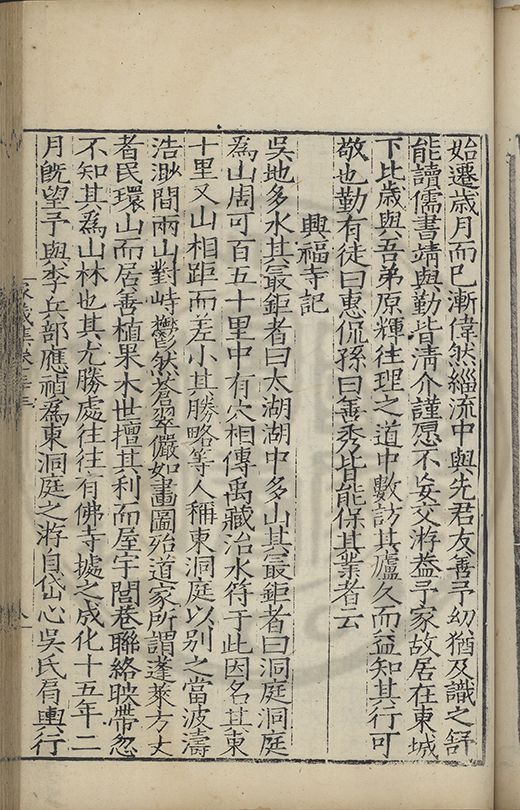 始遷歲月而巳漸偉然緇流中與先君友善予幼猶及識之舒
能讀儒書靖與勤皆清介謹愿不妄交游葢予家故居在東城
下比歲與吾弟原輝往理之道中數訪其廬久而益知其行可
敬也勤有徒曰惠侃孫曰善秀皆能保其業者云
興福寺記
吳地多水其最鉅者曰太湖湖中多山其最鉅者曰洞庭洞庭
爲山周可百五十里中有穴相傳禹藏治水符于此因名其東
十里又山相距而差小其勝略等人稱東洞庭以別之當波濤
浩渺間兩山對峙鬱然蒼翠儼如畫圖殆道家所謂蓬萊方丈
者民環山而居善植果木世擅其利而屋宇閭巷聯絡映帶忽
不知其爲山林也其尤勝處往往有佛寺據之成化十五年二
月旣望予與李兵部應禎爲東洞庭之游自岱心吳氏肩輿行